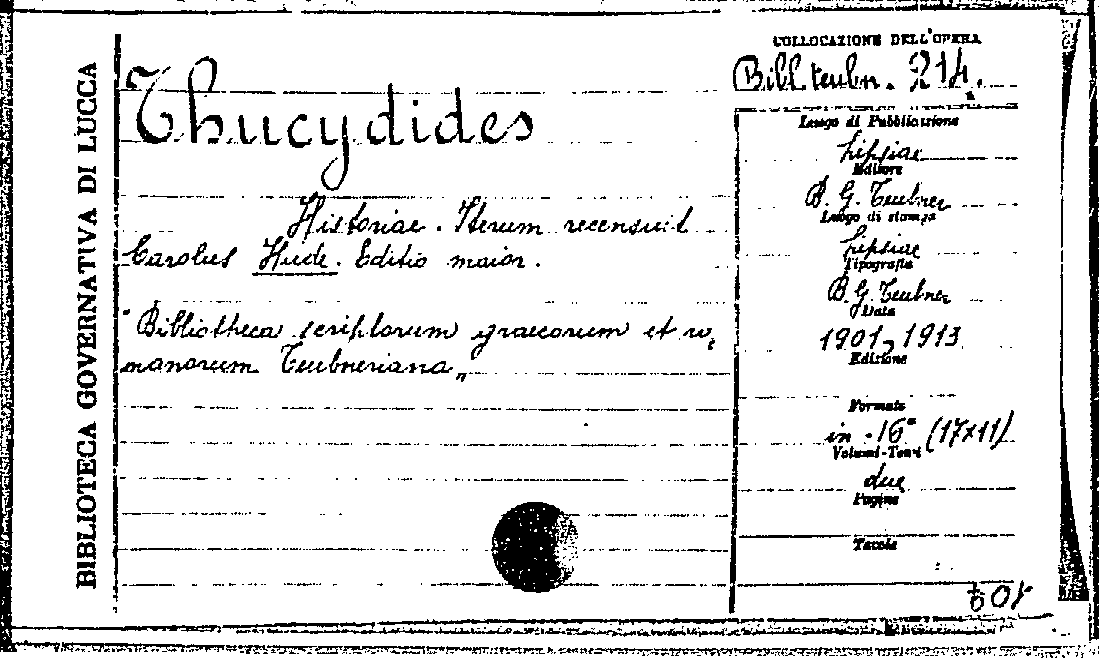 BIBLIOTECA GOVERNATIVA DI LUCCA
Thucydides
Historiae. Iterum recensuit
Carolus Hude. Editio maior.
"Bibliotheca scriptorum graecorum et ro,
manorum Teubneriana„
COLLOCAZIONE DELL'OPERA
Bibl. teubn. 214.
Luogo di Pubblicazione
Lipsiae
Editore
B. G. Teubner
Luogo di stampa
Lipsiae
Tipografia
B. G. Teubner
Data
1901, 1913
Edizione
Formato
in -16° (17x11)
Volumi-Tomi
due
Pagine
Tavole